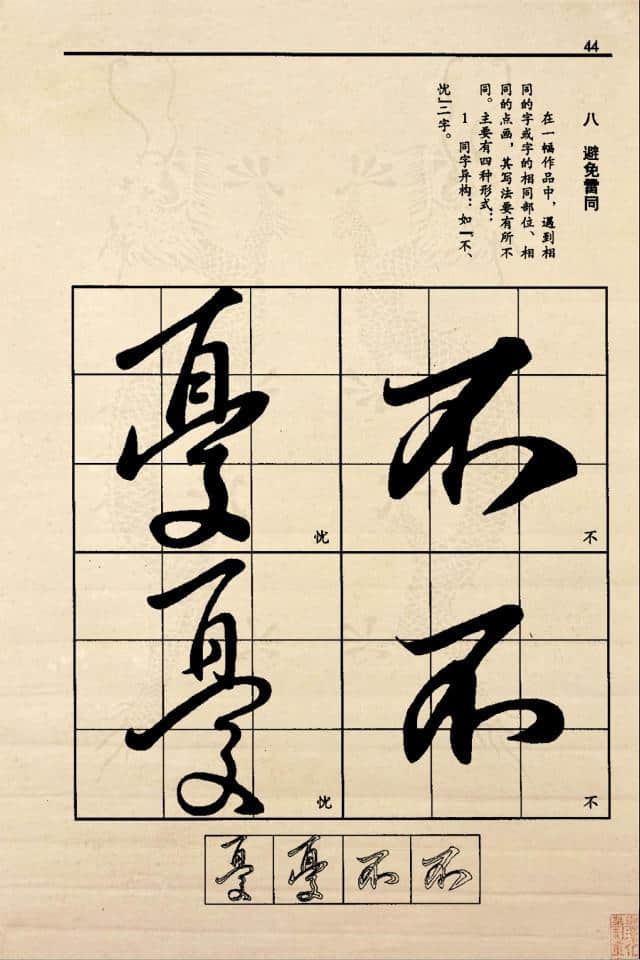 44
八 避免雷同
在一幅作品中，遇到相
同的字或字的相同部位、相
同的点画，其写法要有所不
同。主要有四种形式：
1 同字异构：如『不、
忧』二字。
不
不
不
不
憂
忧
憂
忧
不
不
憂
憂